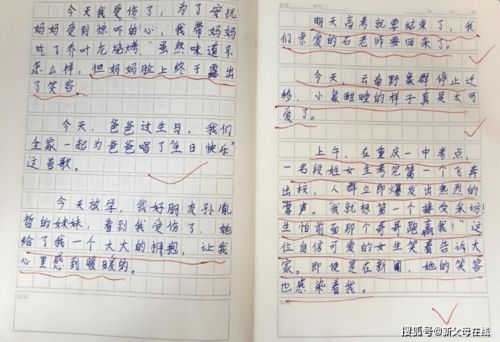 今天我受伤了，为了安抚
妈妈受到惊吓的心，我带妈妈
吃了乔叶尼烧烤，虽然味道不
怎么样，但妈妈脸上终于露出
了笑容。
今天，爸爸过生日，我们
全家一起为爸爸唱了“生日快乐”
这首歌。
今天放学，我好朋友孙胤
哲的妹妹，看到我受伤了，她
给了我一个大大的拥抱，让我
心里感到暖暖的。
明天高考就要结束了，我
们亲爱的石老师要回来了。
今天，云南野象群停止迁
移，小象酣睡的样子真是太可
爱了。
上午，在重庆一中考点，
一名段姓女生考完第一个飞奔
出校，人群立即爆发出热烈的
掌声。“我就想第一个接受采访！
生怕前面那个哥哥跑赢我！”这
位自信可爱的女生笑着告诉大
家。即使是在新闻，她的笑容
也感染着我。
搜狐号@新父母在线